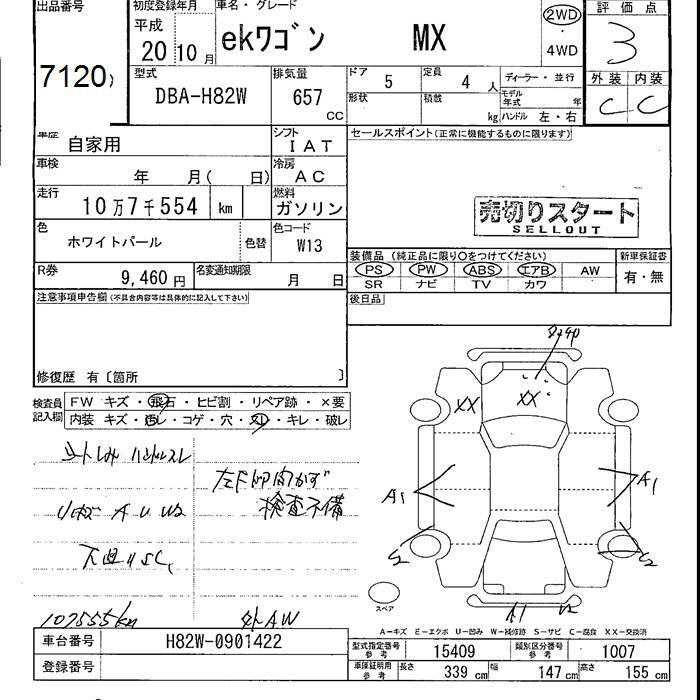 出品番号 初度登録年月 車名・グレード 評価点
平成
20 10月 ekワゴン MX 2WD ・ 4WD 3
7120
型式 排気量 ドア 5 定員 4人 ディーラー・並行 外装 内装
DBA-H82W 657 CC 形状 積載 kg モデル年式 年 ハンドル 左・右 C C
車歴 自家用 シフト IAT セールスポイント(正常に機能するものに限ります)
車検 年 月( 日) 冷房 AC
走行 10万7千554 km 燃料 ガソリン
売切りスタート
SELLOUT
色 ホワイトパール 色替 色コード W13
装備品(純正品に限り○をつけてください) 新車保証書
R券 9,460円 名変通知期限 月 日 PS PW ABS エアB AW 有・無
SR ナビ TV カワ
注意事項申告欄(不具合内容等は具体的に記入して下さい) 後日品
修復歴 有〔箇所 〕
検査員記入欄 FW キズ・飛石・ヒビ割・リペア跡・×要
内装 キズ・汚レ・コゲ・穴・スリ・キレ・破レ
XX XX
シートしみ ハンドルスレ
左F 内かず
検査不備
リヤバンパー A U W2
下廻りSC,
A1 A1
S2 S2
107555km 外AW
A1 V2
スペア
A-キズ E-エクボ U-凹み W-補修跡 S-サビ C-腐食 XX-交換済
車台番号 H82W-0901422 型式指定番号 参考 15409 類別区分番号 参考 1007
登録番号 車庫証明用 参考 長さ 339 cm 幅 147 cm 高さ 155 cm